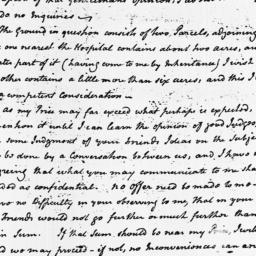 of that Gentleman's opinion
do no Inquiries
The ground in question consists of two Parcels, adjoining
one nearest the Hospital contains about two acres, an
part of it (having come to me by Inheritance) I wish
other contains a little more than six acres, and this I
a competent Consideration
as my Price may far exceed what perhaps is expected.
mention it until I can learn the opinion of good Judges,
some Judgment of your Friends Ideas on the Subje
be done by a Conversation between us, and I know
greeing that what you may communicate to me sha
ded as confidential. No Offer need be made to me
no Difficulty in your observing to me, that in your
Friends would not go further or much further than
in Sum. If that Sum, should be near my Price, I wil
d we may proceed - if not, no Inconveniences can ari